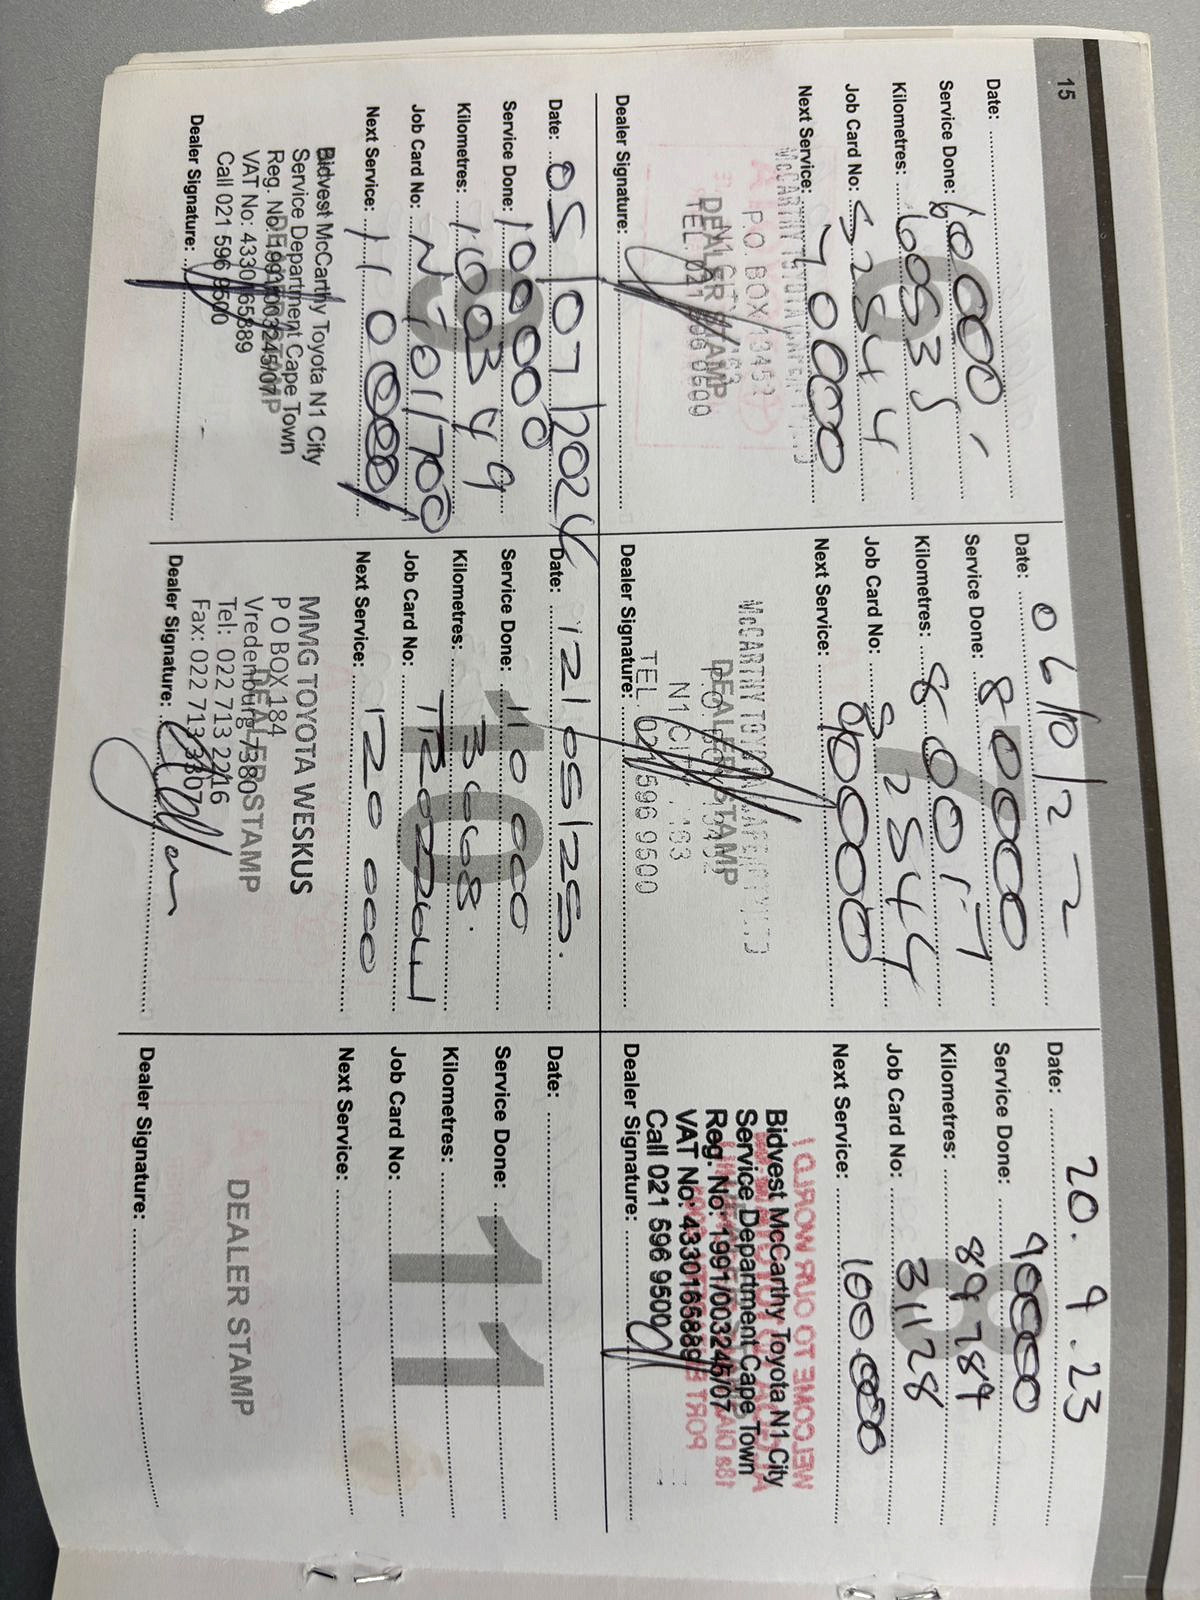 15
Date:
Service Done: 60000
Kilometres: 60535
Job Card No: S2544
Next Service: 70000
McCARTHY TOYOTA
P.O. BOX 13452
N1 CITY
DEALER STAMP
TEL: 021 596 9500
Dealer Signature:
Date: 06/10/22
7
Service Done: 80000
Kilometres: 80017
Job Card No: S2544
Next Service: 90000
McCARTHY TOYOTA
DEALER STAMP
N1 CITY
TEL 021 596 9500
Dealer Signature:
Date: 20.9.23
8
Service Done: 90000
Kilometres: 89789
Job Card No: 31128
Next Service: 100.000
Bidvest McCarthy Toyota N1 City
Service Department Cape Town
Reg. No: 1991/003245/07
VAT No: 4330165889
Call 021 596 9500
Dealer Signature:
Date: 05/07/2024
9
Service Done: 100000
Kilometres: 100349
Job Card No: NT011700
Next Service: 110000
Bidvest McCarthy Toyota N1 City
Service Department Cape Town
DEALER STAMP
Reg. No: 1991/003245/07
VAT No: 4330165889
Call 021 596 9500
Dealer Signature:
Date: 12/05/25.
10
Service Done: 110 000
Kilometres:
Job Card No:
Next Service: 120 000
MMG TOYOTA WESKUS
P O BOX 184
Vredenburg 7380
DEALER STAMP
Tel: 022 713 2216
Fax: 022 713 3307
Dealer Signature:
Date:
11
Service Done:
Kilometres:
Job Card No:
Next Service:
DEALER STAMP
Dealer Signature: